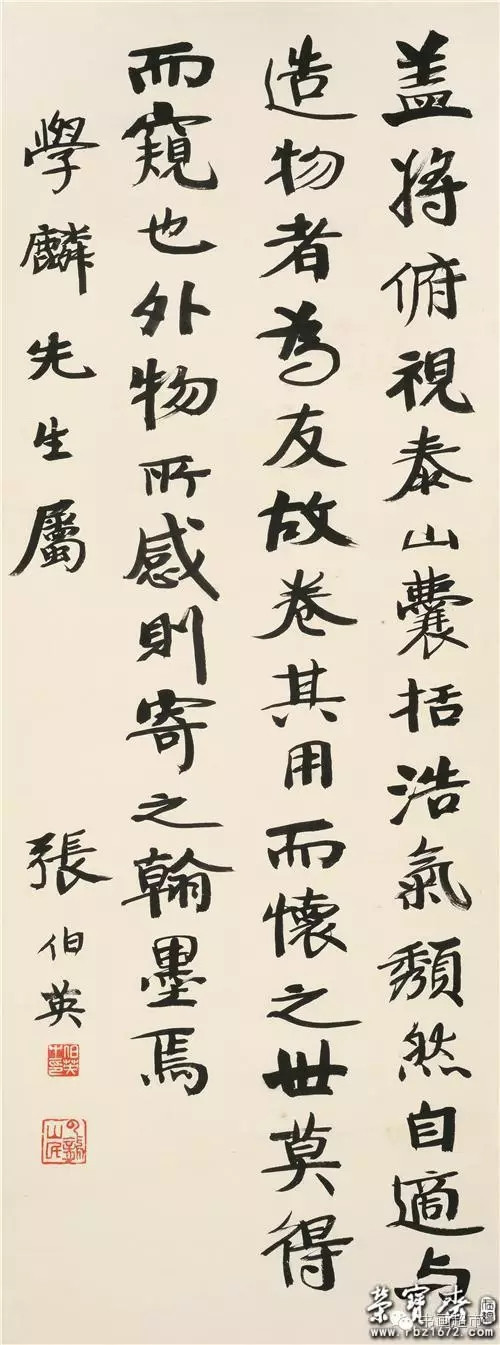 盖将俯視泰山囊括浩氣頽然自適与
造物者為友故卷其用而懷之世莫得
而窺也外物所感則寄之翰墨焉
學麟先生屬
張伯英
榮寶齋
书画超市
www.rbz1672.com